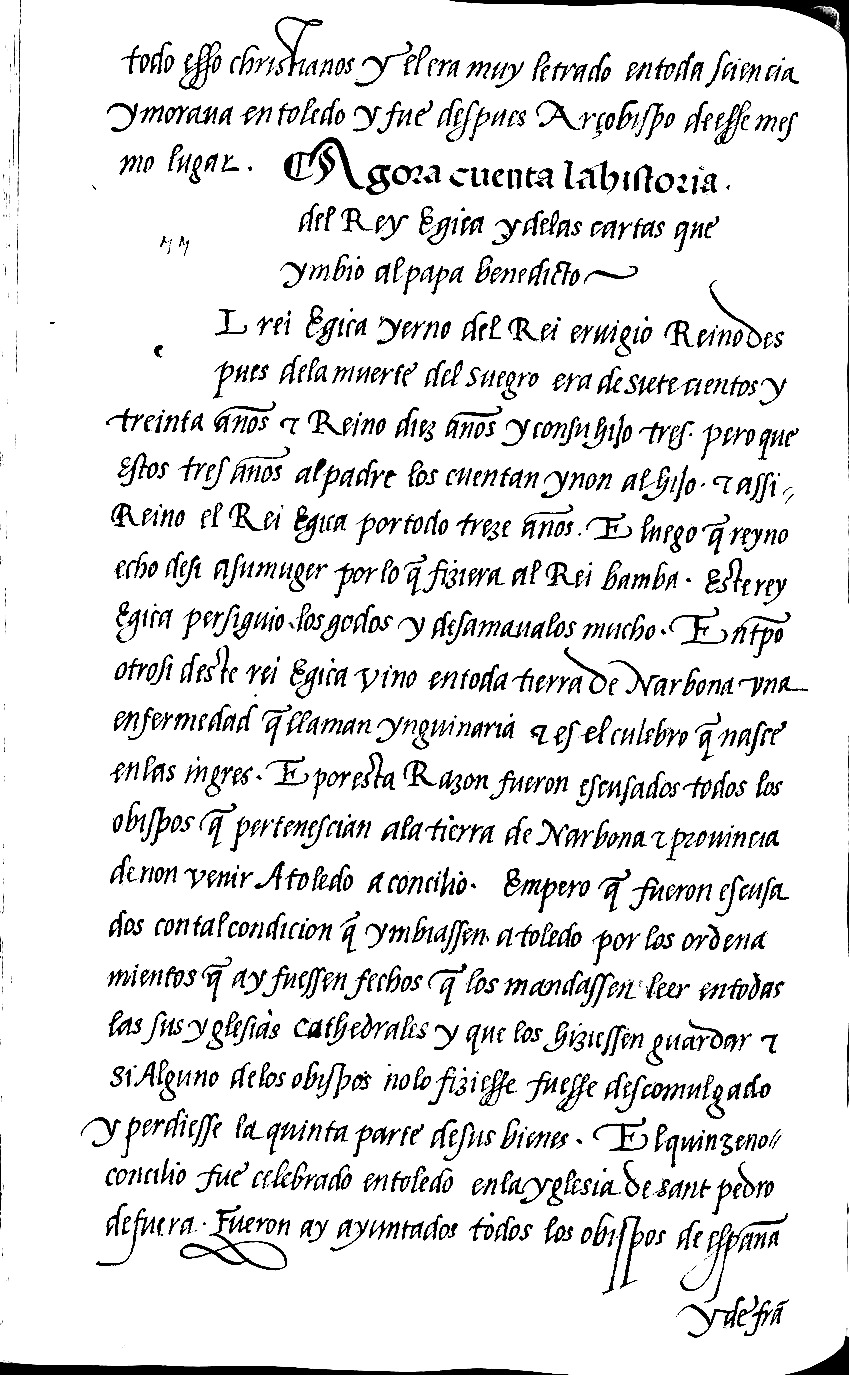 todo esso christianos y el era muy letrado en toda sciencia
y moraua en toledo y fue despues Arçobispo de esse mes
mo lugar. Agora cuenta la historia.
del Rey Egica y delas cartas que
ymbio al papa benedicto
L rei Egica yerno del Rei eruigio Reino des
pues dela muerte del suegro era de siete cientos y
treinta años & Reino diez años y con su hijo tres. pero que
Estos tres años al padre los cuentan y non al hijo. & assi
Reino el Rei Egica por todo treze años. E luego q̃ reyno
echo desi a su muger por lo q̃ fiziera al Rei bamba. Este rey
Egica persiguio los godos y desamaualos mucho. E en tp̃o
otrosi deste rei Egica vino en toda tierra de Narbona vna
enfermedad q̃ llaman ynguinaria & es el culebro q̃ nasce
en las ingres. E por esta Razon fueron escusados todos los
obispos q̃ pertenescian ala tierra de Narbona & prouincia
de non venir A toledo a concilio. Empero q̃ fueron escusa
dos con tal condicion q̃ ymbiassen a toledo por los ordena
mientos q̃ ay fuessen fechos q̃ los mandassen leer en todas
las sus yglesias cathedrales y que los hiziessen guardar &
si Alguno de los obispos no lo fiziesse fuesse descomulgado
y perdiesse la quinta parte de sus bienes. El quinzeno
concilio fue celebrado en toledo en la yglesia de sant pedro
de fuera. Fueron ay ayuntados todos los obispos de españa
y de frã